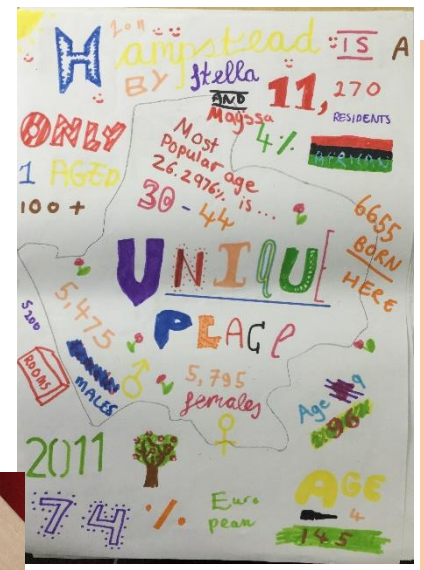 2011
Hampstead IS A
BY Stella
AND
Mayssa
11,270
RESIDENTS
ONLY
1 AGED
100+
Most
Popular age
26.2976% is...
30-44
4%
AFRICAN
6655
BORN
HERE
UNIQUE
PLACE
5200
ROOMS
5,475
MALES
5,795
females
Age 9
96
2011
74%
Euro
pean
AGE
4
145